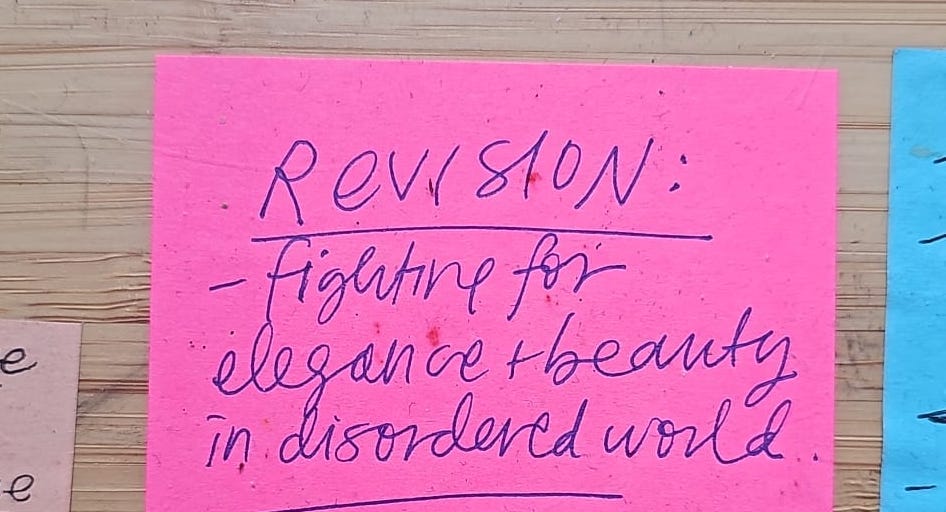 REVISION:
- fighting for
elegance + beauty
in disordered world.
e
e